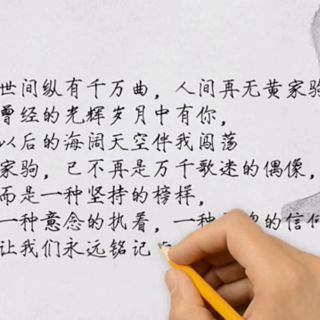 世间纵有千万曲，人间再无黄家驹
曾经的光辉岁月中有你，
以后的海阔天空伴我闯荡
家驹，已不再是万千歌迷的偶像，
而是一种坚持的榜样，
一种意念的执着，一种 的信仰
让我们永远铭记